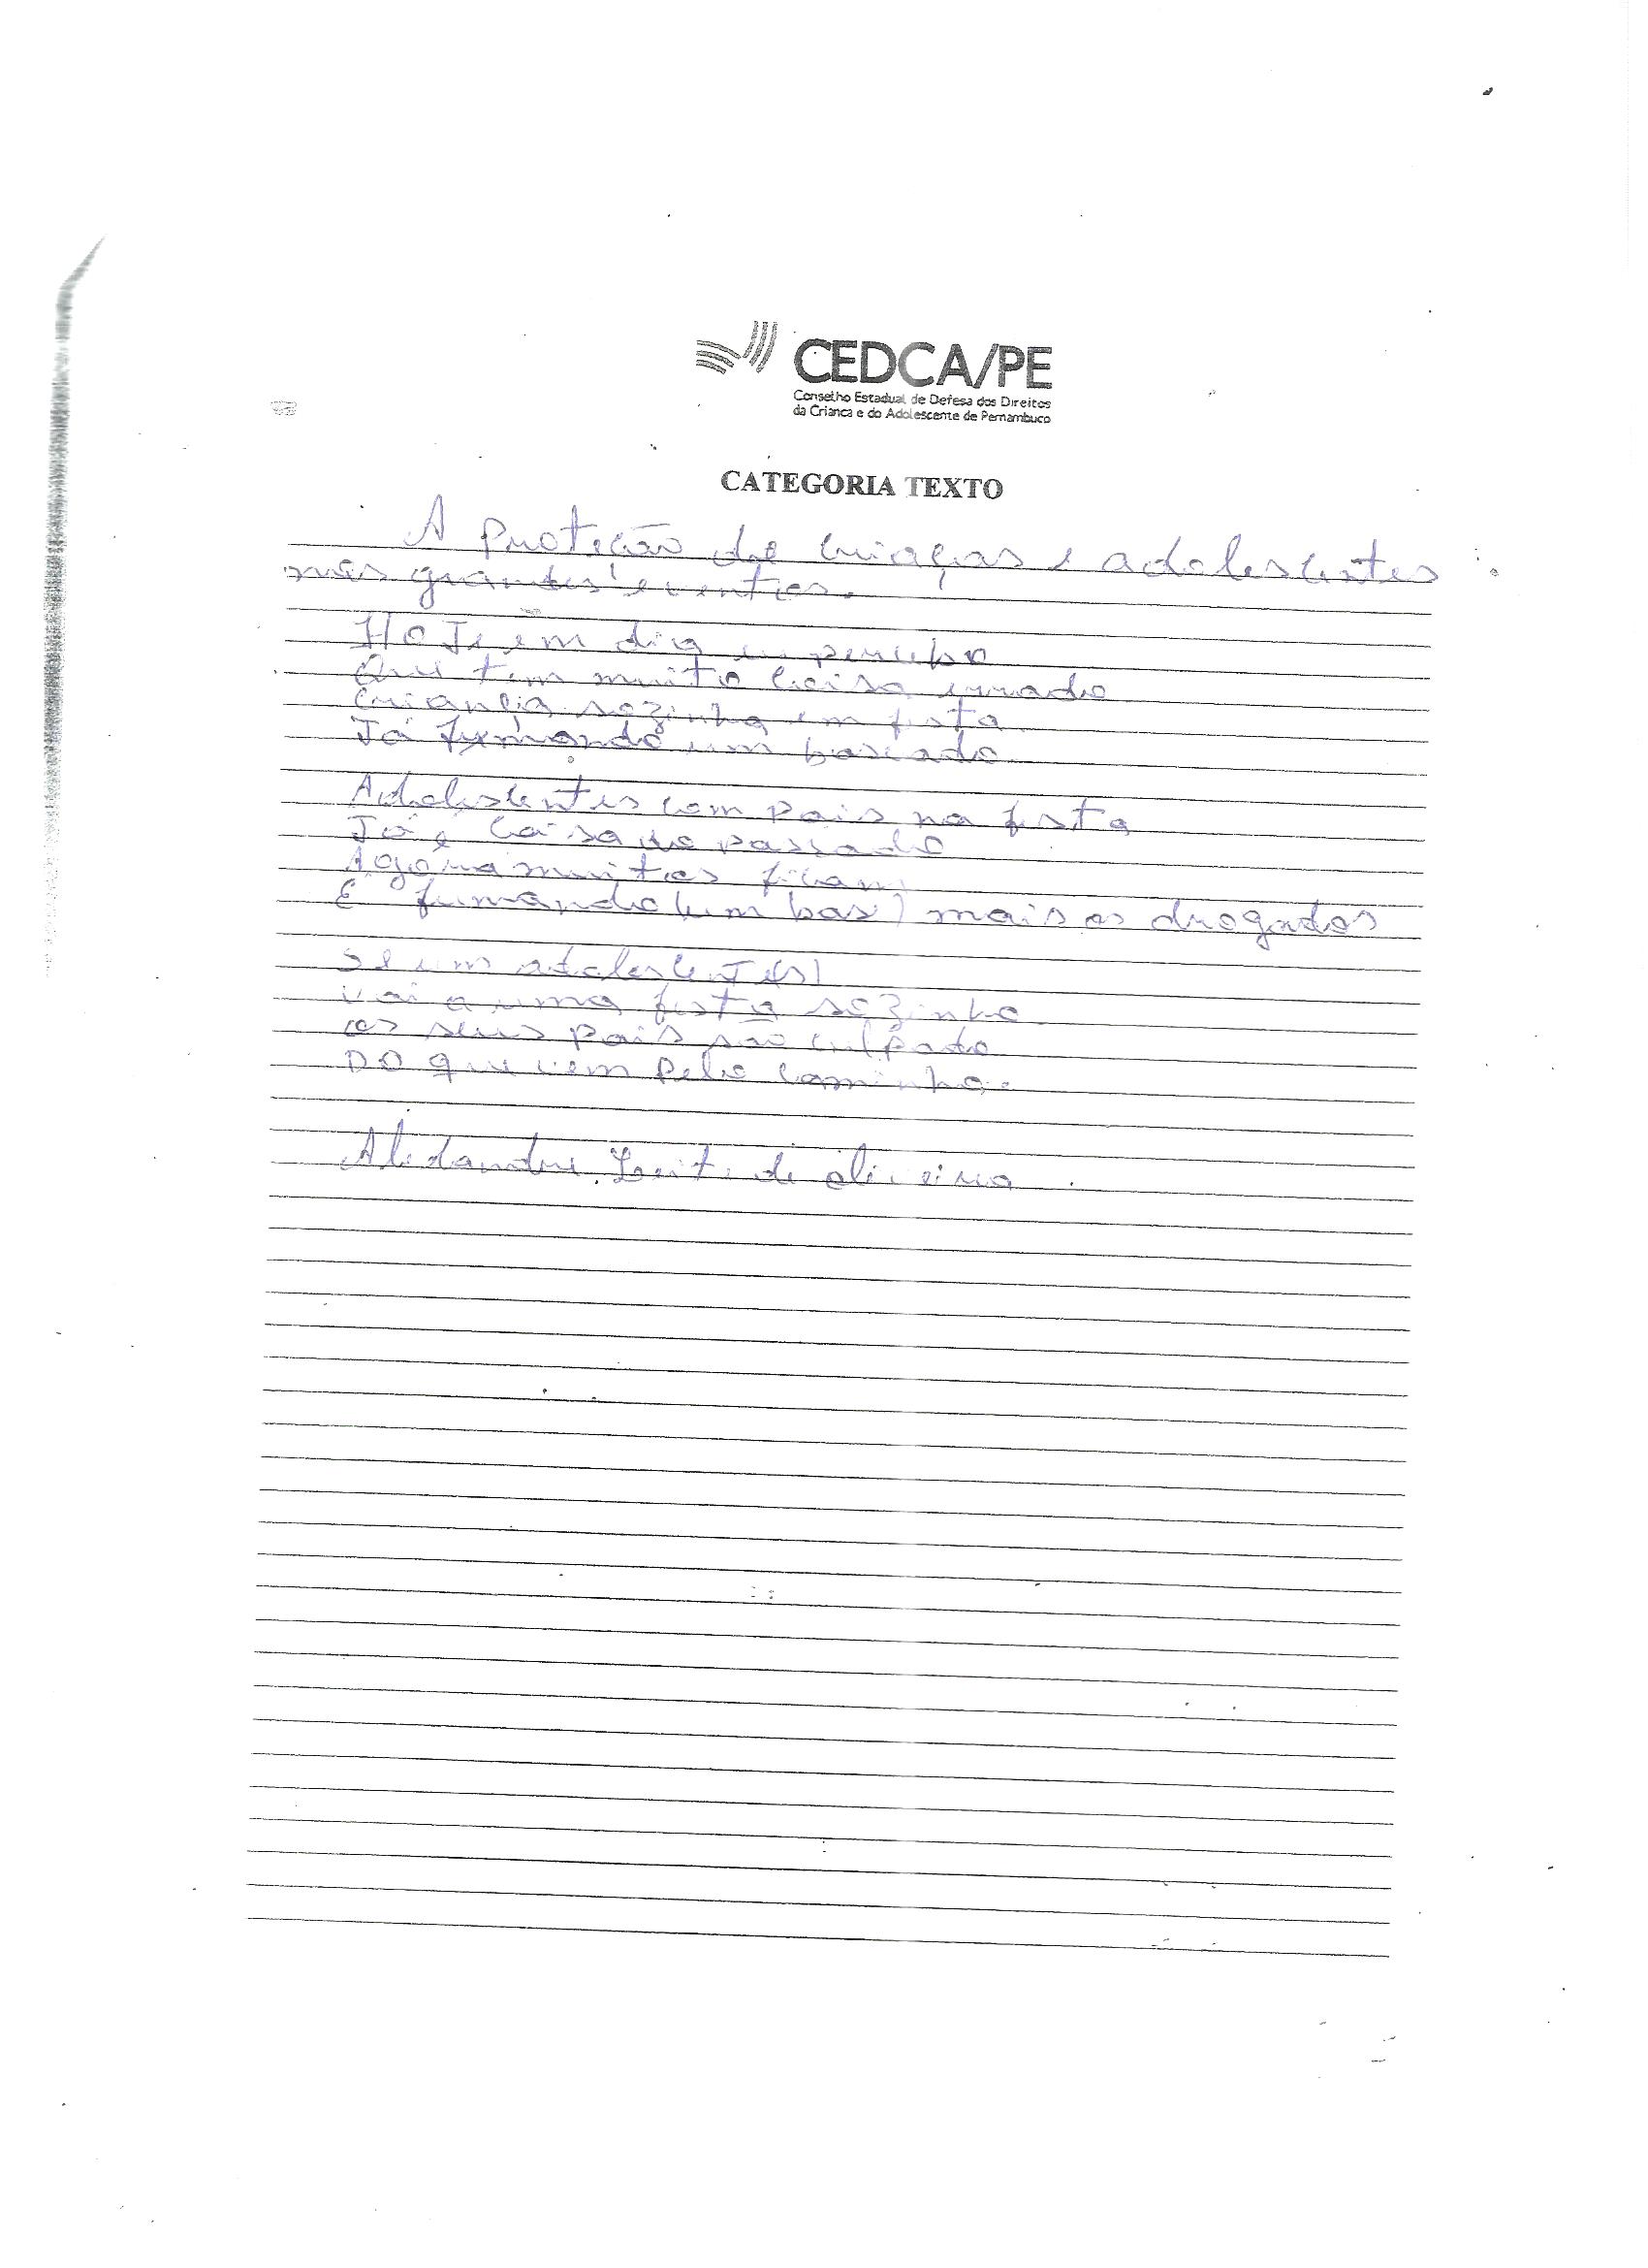 CEDCA/PE
Conselho Estadual de Defesa dos Direitos
da Criança e do Adolescente de Pernambuco
CATEGORIA TEXTO
A proteção de criaças e adolescentes
nos grandes eventos.
HoJe em dia eu percebo
Que tem muito coisa errado
criança sozinha em festa
Já fumando um baseado
Adolescentes com pais na festa
Já é coisa do passado
Agora muitos ficam
E fumando (um bas) mais os drogados
Se um adolescente(s)
vai a uma festa sozinho
os seus pais são culpado
DO que vem pelo caminho.
Leite de oliveira